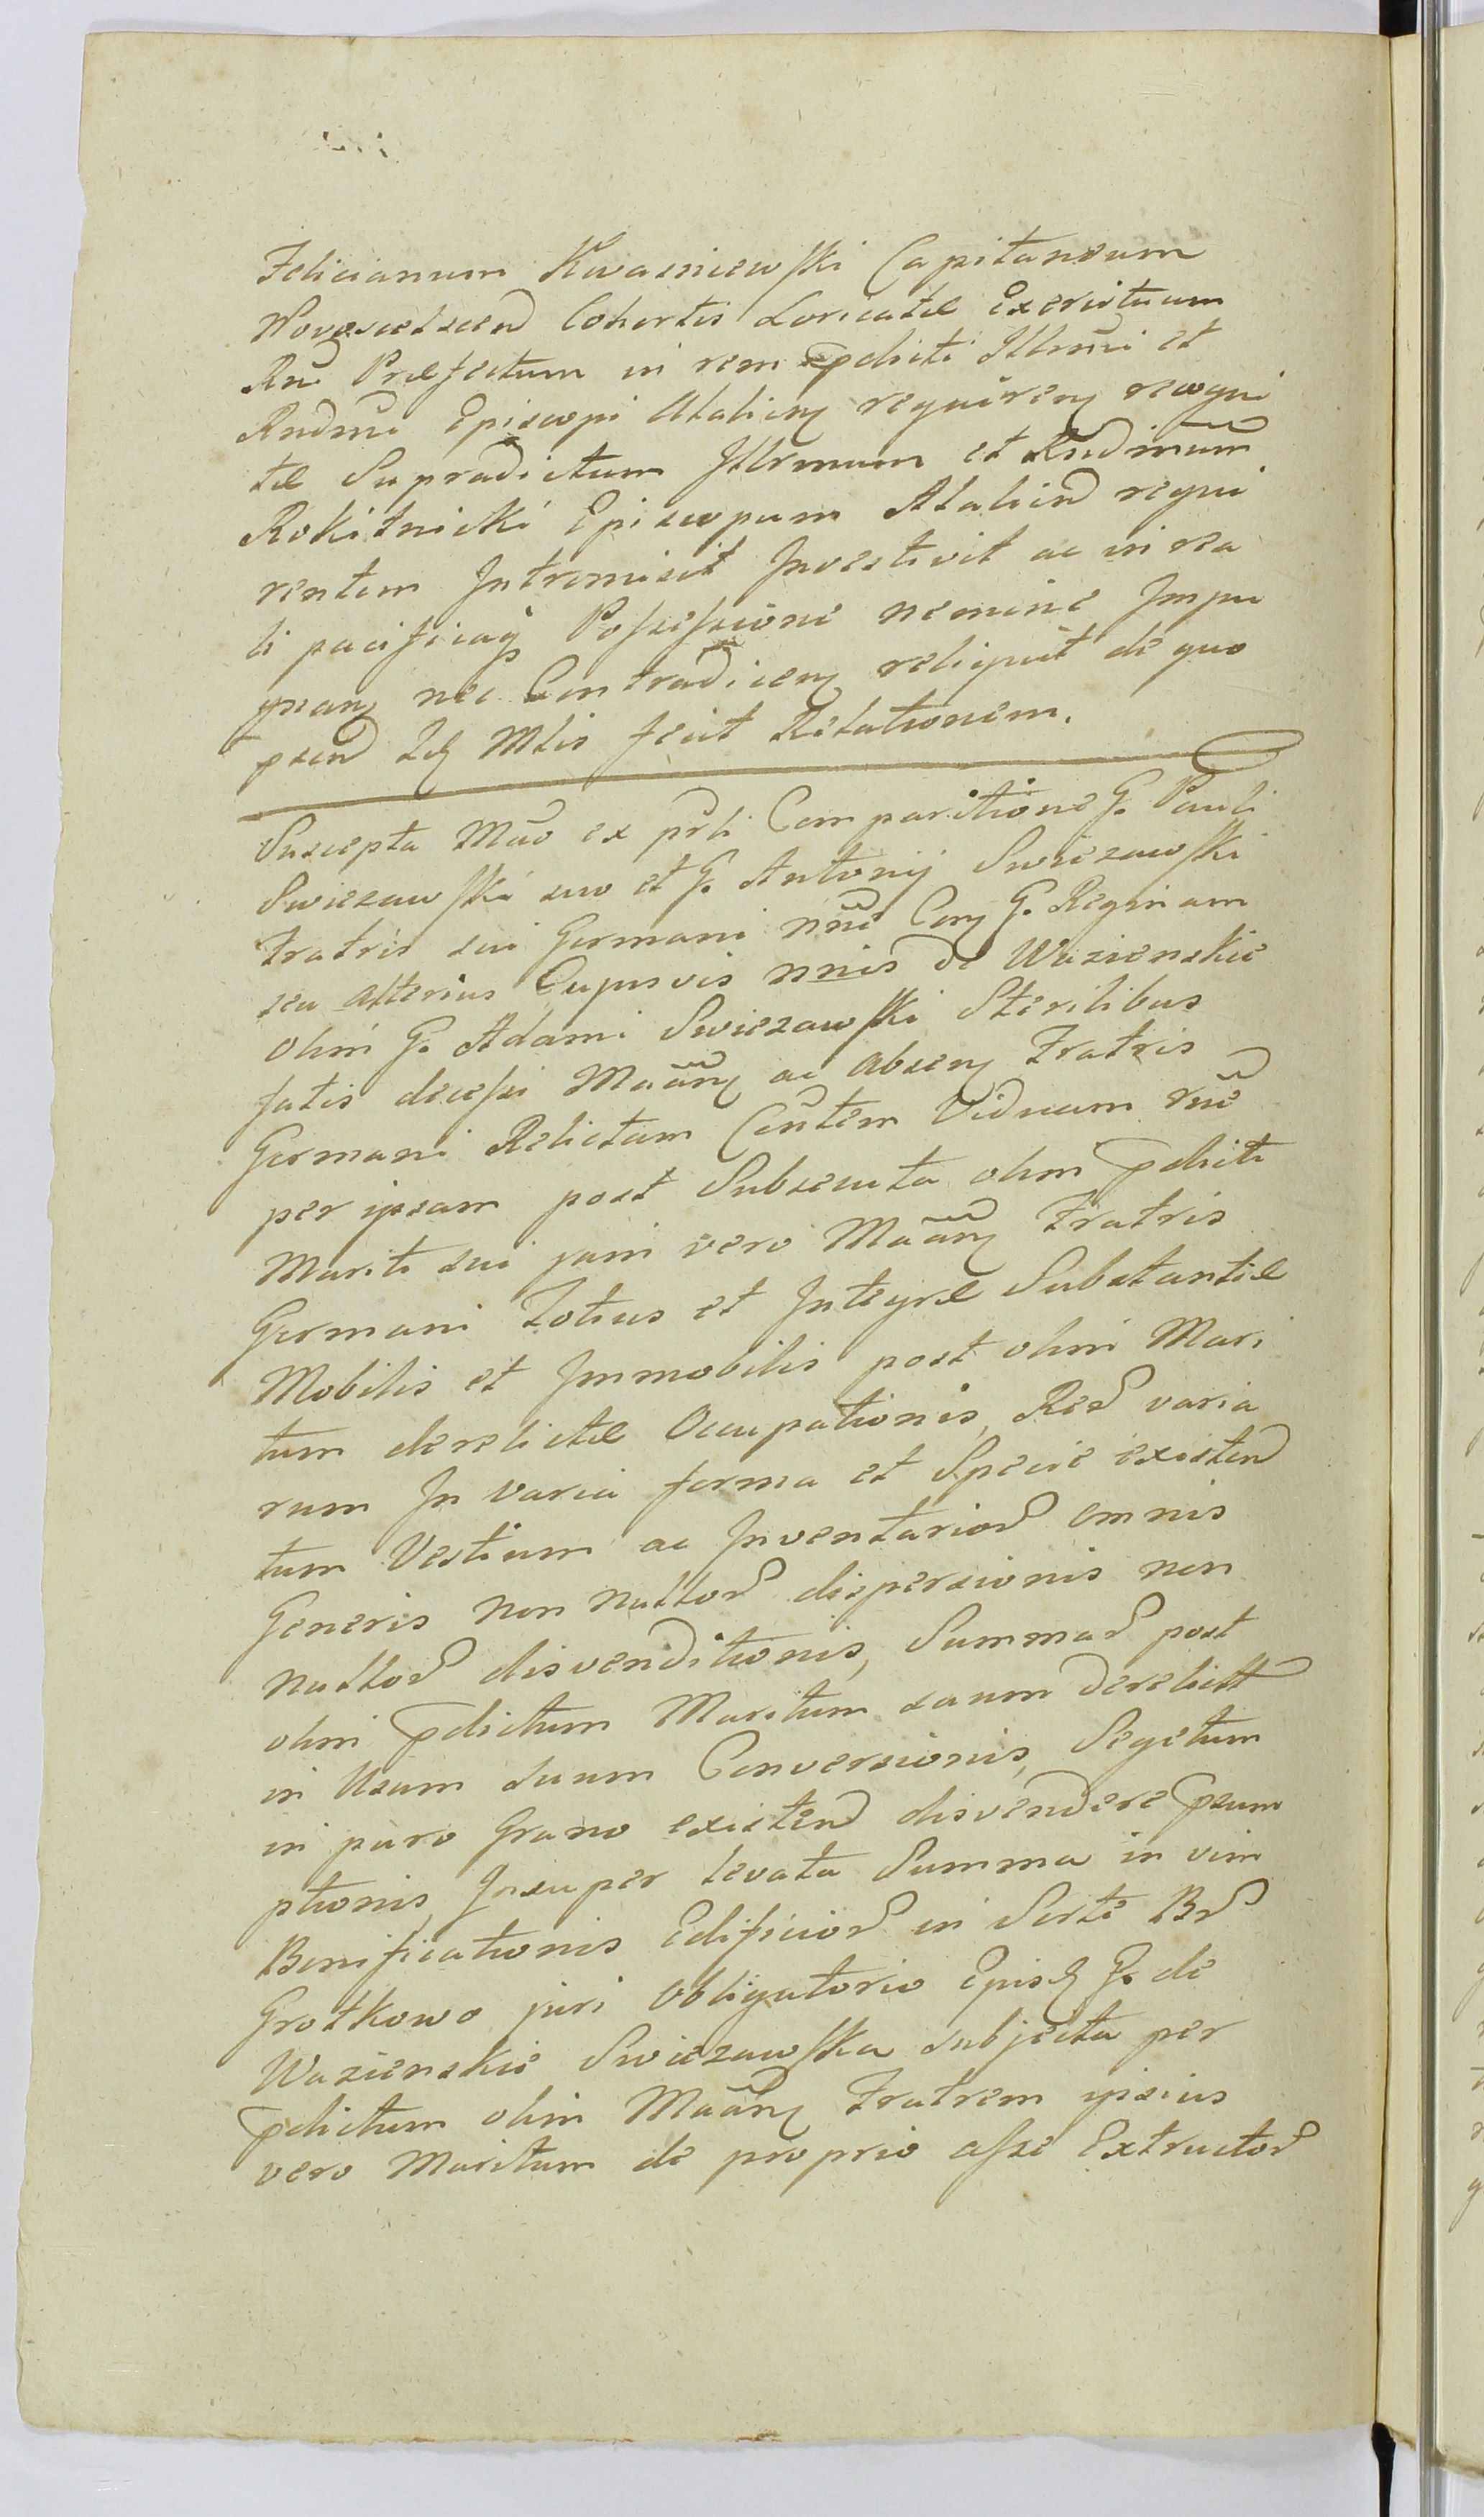 Felicianum Kwasniewski Capitaneum
Novosielscen Cohortis Loricatæ Exercituum
Rni Præfectum in rem pdicti Illrmi et
Rndmi Episcopi Atalien requiren recogni
tæ Supradictum Illrmum et Rndmum
Rokitnicki Episcopum Atalien requi
rentem Intromisit Investivit ac in rea
li pacificaq Possessione nemine Impu
gnan nec Contradicen reliquit de quo
psen Mlis fecit Relationem.
Suscepta Mao ex prli Comparitione G. Pauli
Swiezawski suo et G. Antonij Swiezawski
Fratris sui Germani nne Con G. Reginam
seu alterius Cujusvis nnis de Wazienskie
olim G. Adami Swiezawski Sterilibus
fatis decessi ac absen Fratris
Germani Relictam Cntem Viduam rne
per ipsam post Subsecuta olim pdicti
Mariti sui jam vero Fratris
Germani Totius et Integræ Substantiæ
Mobilis et Immobilis post olim Mari
tum derelictæ Occupationis, Rer varia
rum In varia forma et Specie existen
tum Vestium ac Inventarior omnis
Generis non nullor dispersionis non
nullor disvenditionis, Summar post
olim pdictum Maritum suum derelict
in Usum suum Conversionis, Segetum
in puro Grano existen disvendere psum
ptionis, Insuper levata Summa in vim
Bonificationis Edificior in Sorte Br
Grotkowo juri obligatorio G. de
Wazienskie Swiezawska subjecta per
pdictum olim Fratrem ipsius
vero Maritum de proprio asse Extructor